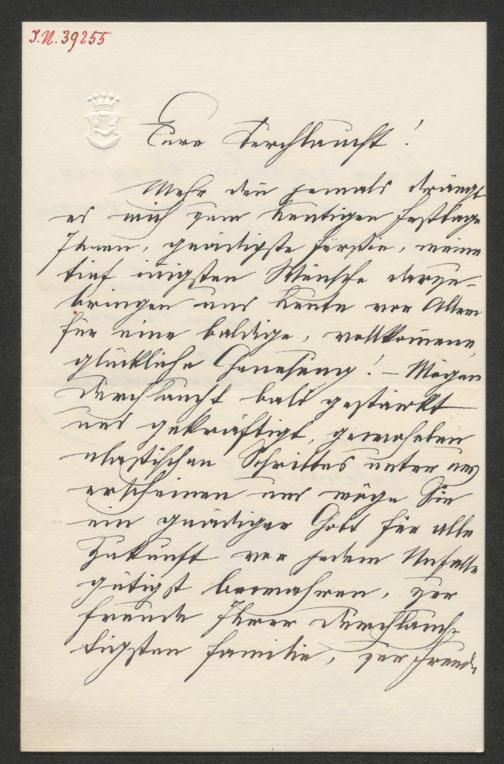 J.N. 39255
Eure Durchlaucht!
Mehr den jemals drängt
es mich zum heutigen Festtage
Ihnen, gnädigste Fürstin, meine
tief innigsten Wünsche darzu-
bringen und heute vor Allem
für eine baldige, vollkommene
glückliche Genesung! – Mögen
Durchlaucht bald gestärkt
und gekräftigt, gewohnten
elastischen Schrittes unter uns
erscheinen und möge Sie
ein gnädiger Gott für alle
Zukunft vor jedem Unfalle
gütigst bewahren, zur
Freude Ihrer durchlauch-
tigsten Familie, zur Freude